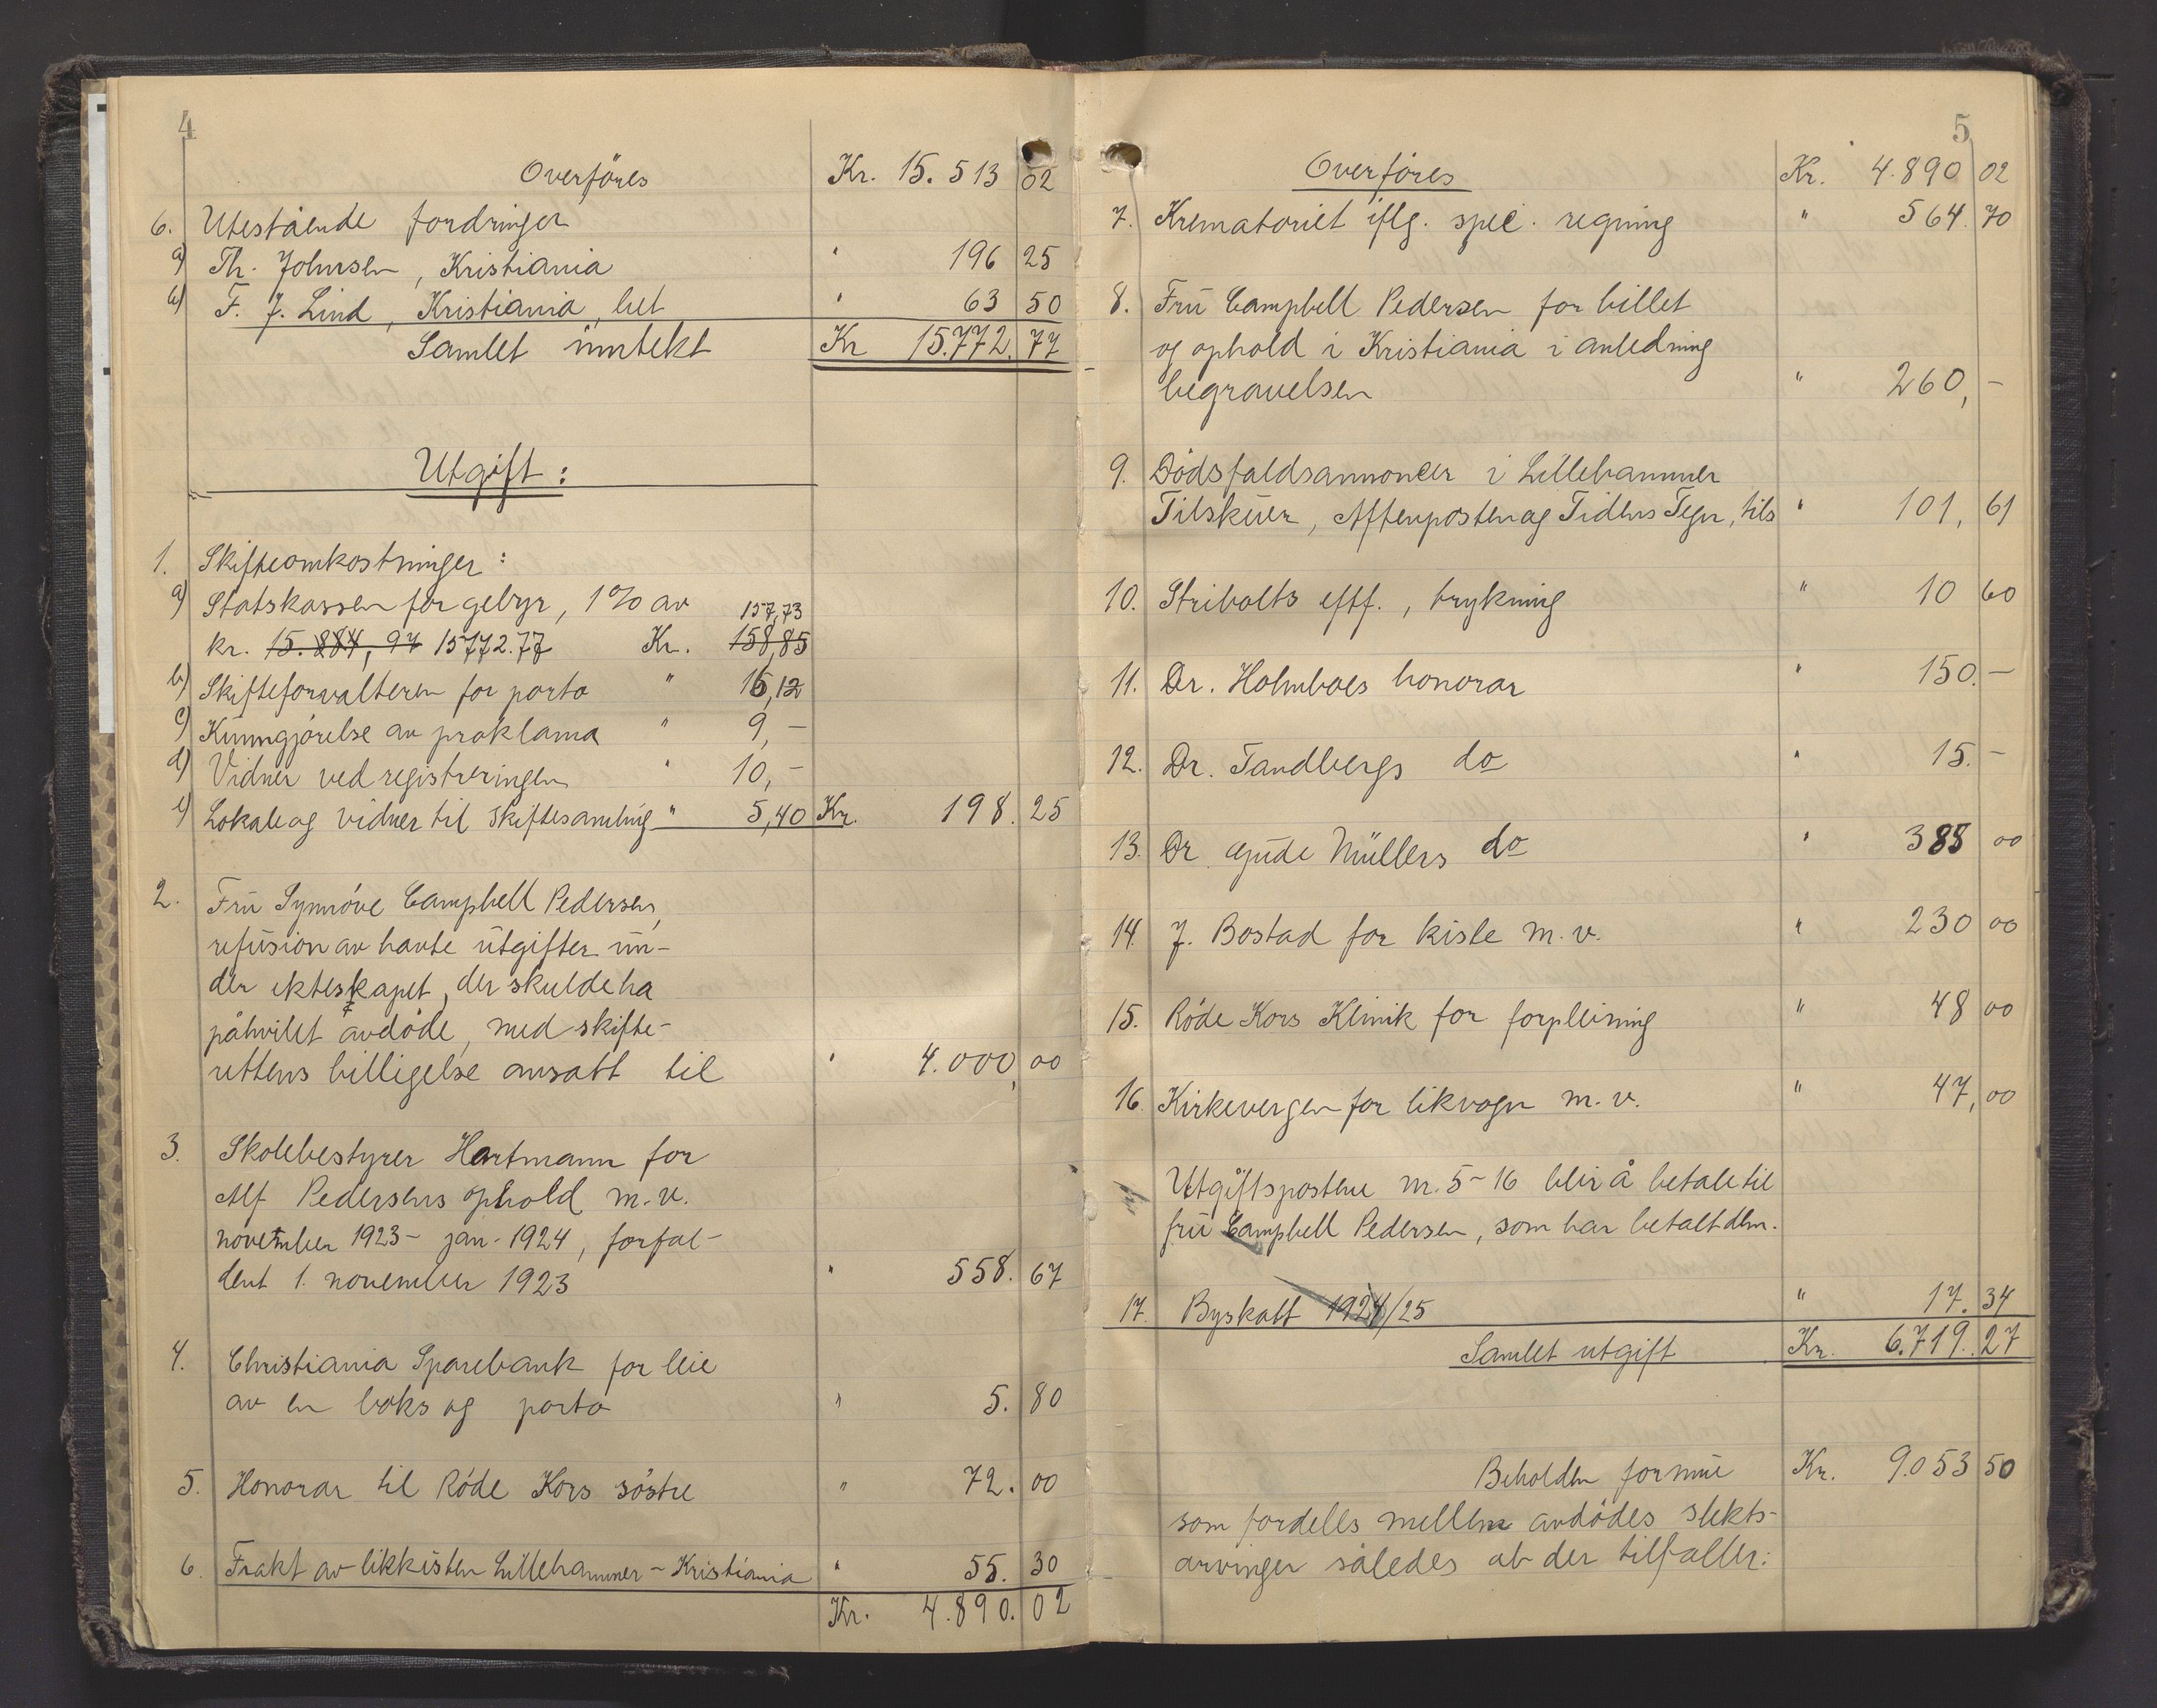 4
Overføres Kr. 15.513 02
6. Utestående fordringer
a) Th. Johnsen, Kristiania " 196 25
b) F. J. Lind, Kristiania, het " 63 50
Samlet inntekt Kr 15.772. 77
Utgift:
1. Skifteomkostninger:
a) Statskassen for gebyr, 1% av 157,73
kr. 15.884,97 15772.77 Kr. 158,85
b) Skifteforvalteren for porto " 16,12
c) Kunngjørelse av proklama " 9,-
d) Vidner ved registreringen " 10,-
e) Lokale og vidner til skiftesamling " 5,40 Kr. 198. 25
2. Fru Synnøve Campbell Pedersen,
refusion av havte utgifter un-
der ekteskapet, der skulde ha
påhvilet avdøde, med skifte-
rettens billigelse ansatt til " 4.000, 00
3. Skolebestyrer Hartmann for
Alf Pedersens ophold m.v.
november 1923 - jan. 1924, forfal-
dent 1. november 1923 " 558. 67
4. Christiania Sparebank for leie
av en boks og porto " 5. 80
5. Honorar til Røde Kors søstre " 72. 00
6. Frakt av likkisten Lillehammer - Kristiania " 55. 30
Kr. 4.890. 02
5
Overføres Kr. 4.890 02
7. Krematoriet iflg. spec. regning " 564. 70
8. Fru Campbell Pedersen for billet
og ophold i Kristiania i anledning
begravelsen " 260, -
9. Dødsfaldsannoncer i Lillehammer
Tilskuer, Aftenposten og Tidens Tegn, tils " 101, 61
10. Stribolts eftf., trykning " 10 60
11. Dr. Holmboes honorar " 150. -
12. Dr. Tandbergs do " 15. -
13. Dr. Gude Müllers do " 385 00
14. J. Bostad for kiste m.v. " 230 00
15. Røde Kors Klinik for forpleining " 48 00
16. Kirkevergen for likvogn m.v. " 47, 00
Utgiftspostene nr. 5-16 blir å betale til
fru Campbell Pedersen, som har betalt dem.
17. Byskatt 1924/25 " 17. 34
Samlet utgift Kr. 6.719. 27
Beholden formue Kr. 9.053 50
som fordeles mellem avdødes slekts-
arvinger således at der tilfaller: